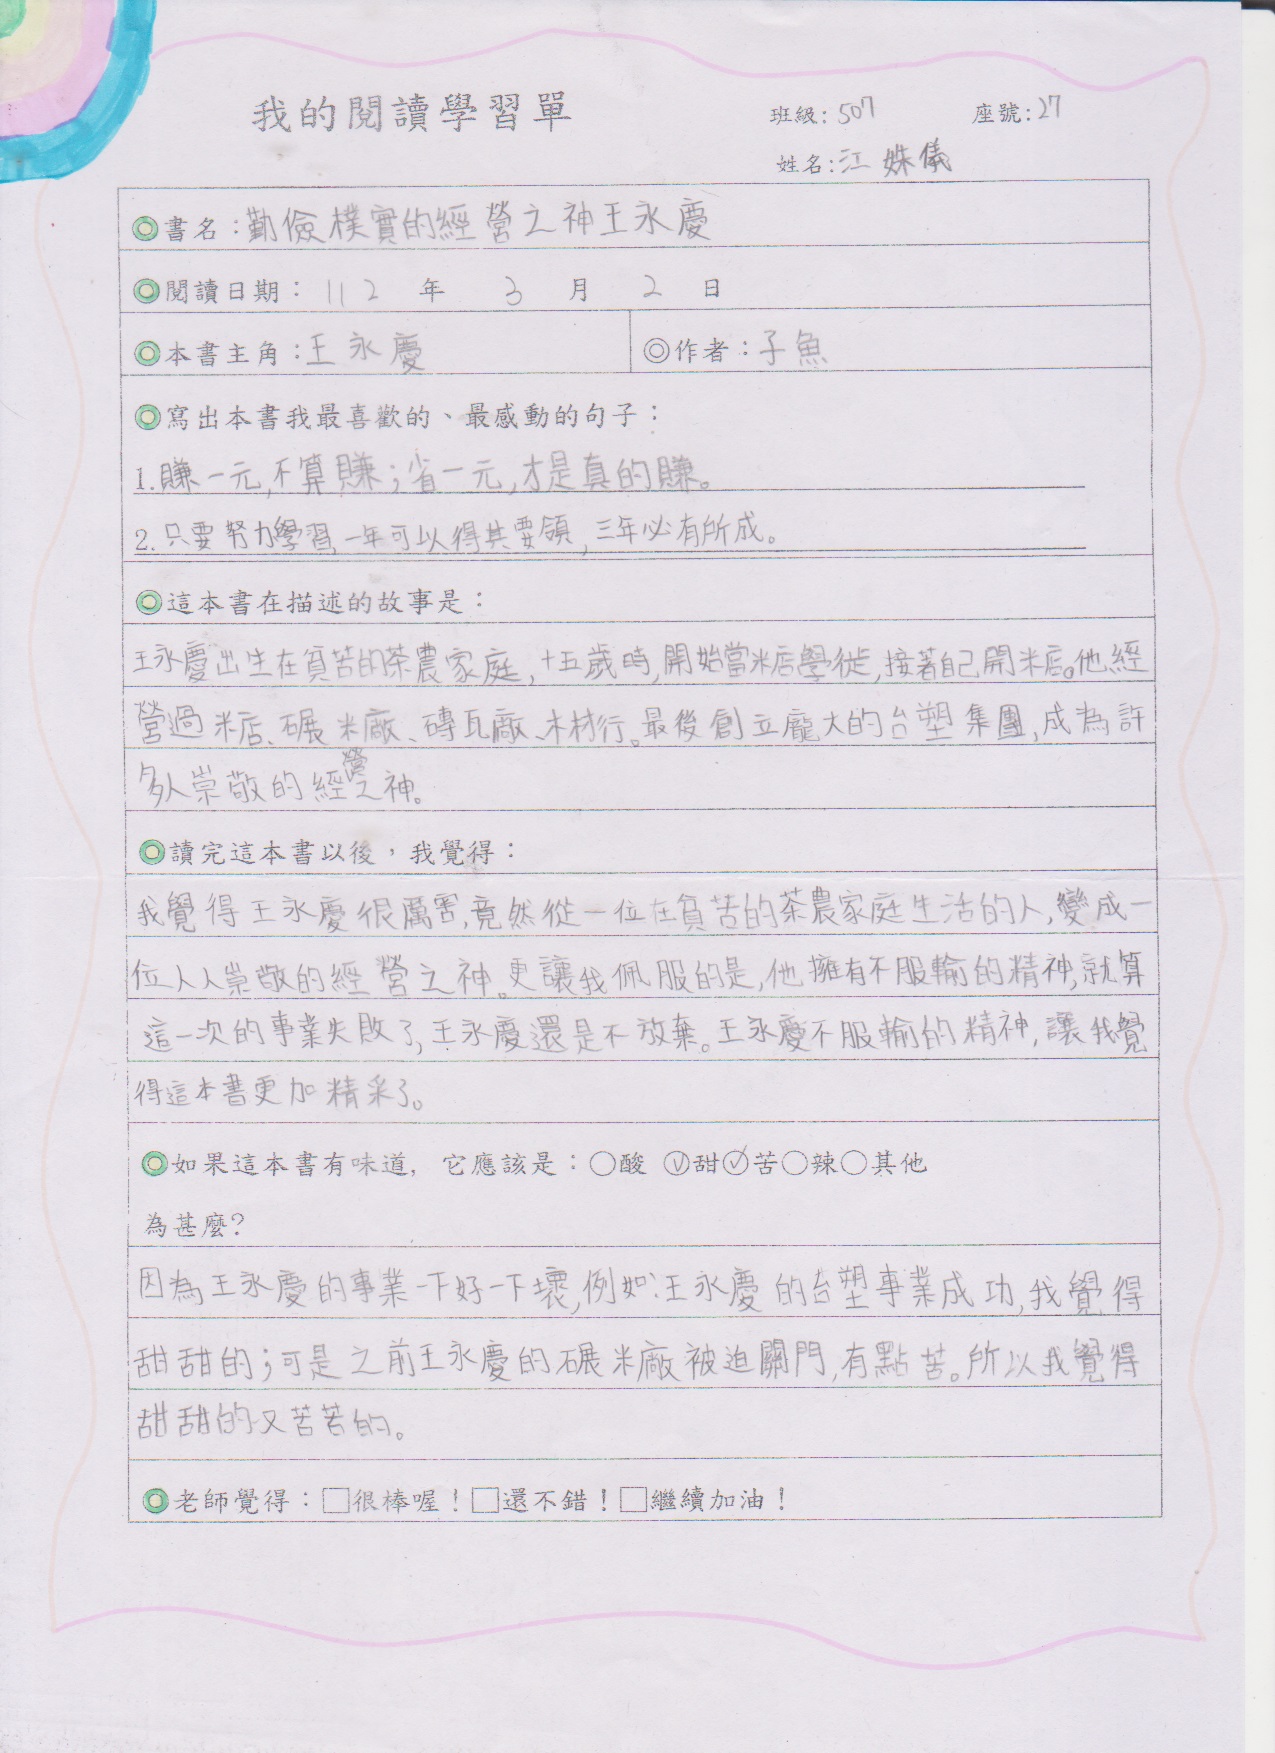 我的閱讀學習單
班級:507 座號:27
姓名:江姝儀
◎書名:勤儉樸實的經營之神王永慶
◎閱讀日期:112年3月2日
◎本書主角:王永慶 ◎作者:子魚
◎寫出本書我最喜歡的、最感動的句子:
1.賺一元,不算賺;省一元,才是真的賺。
2.只要努力學習,一年可以得其要領,三年必有所成。
◎這本書在描述的故事是:
王永慶出生在貧苦的茶農家庭,十五歲時,開始當米店學徒,接著自己開米店。他經
營過米店、碾米廠、磚瓦廠、木材行。最後創立龐大的台塑集團,成為許
多人崇敬的經營之神。
◎讀完這本書以後,我覺得:
我覺得王永慶很厲害,竟然從一位在貧苦的茶農家庭生活的人,變成一
位人人崇敬的經營之神。更讓我佩服的是,他擁有不服輸的精神,就算
這一次的事業失敗了,王永慶還是不放棄。王永慶不服輸的精神,讓我覺
得這本書更加精采了。
◎如果這本書有味道,它應該是:○酸 ⓥ甜 ⓥ苦○辣○其他
為甚麼?
因為王永慶的事業一下好一下壞,例如:王永慶的台塑事業成功,我覺得
甜甜的;可是之前王永慶的碾米廠被迫關門,有點苦。所以我覺得
甜甜的又苦苦的。
◎老師覺得:□很棒喔!□還不錯!□繼續加油!